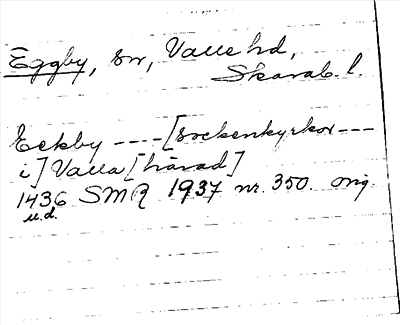 Eggby, sn, Valle hd,
Skarab. l.
Eekby ---- [sockenkyrkor ---
i] Valla [härad]
1436 SMR 1937 nr. 350. orig.
u.d.